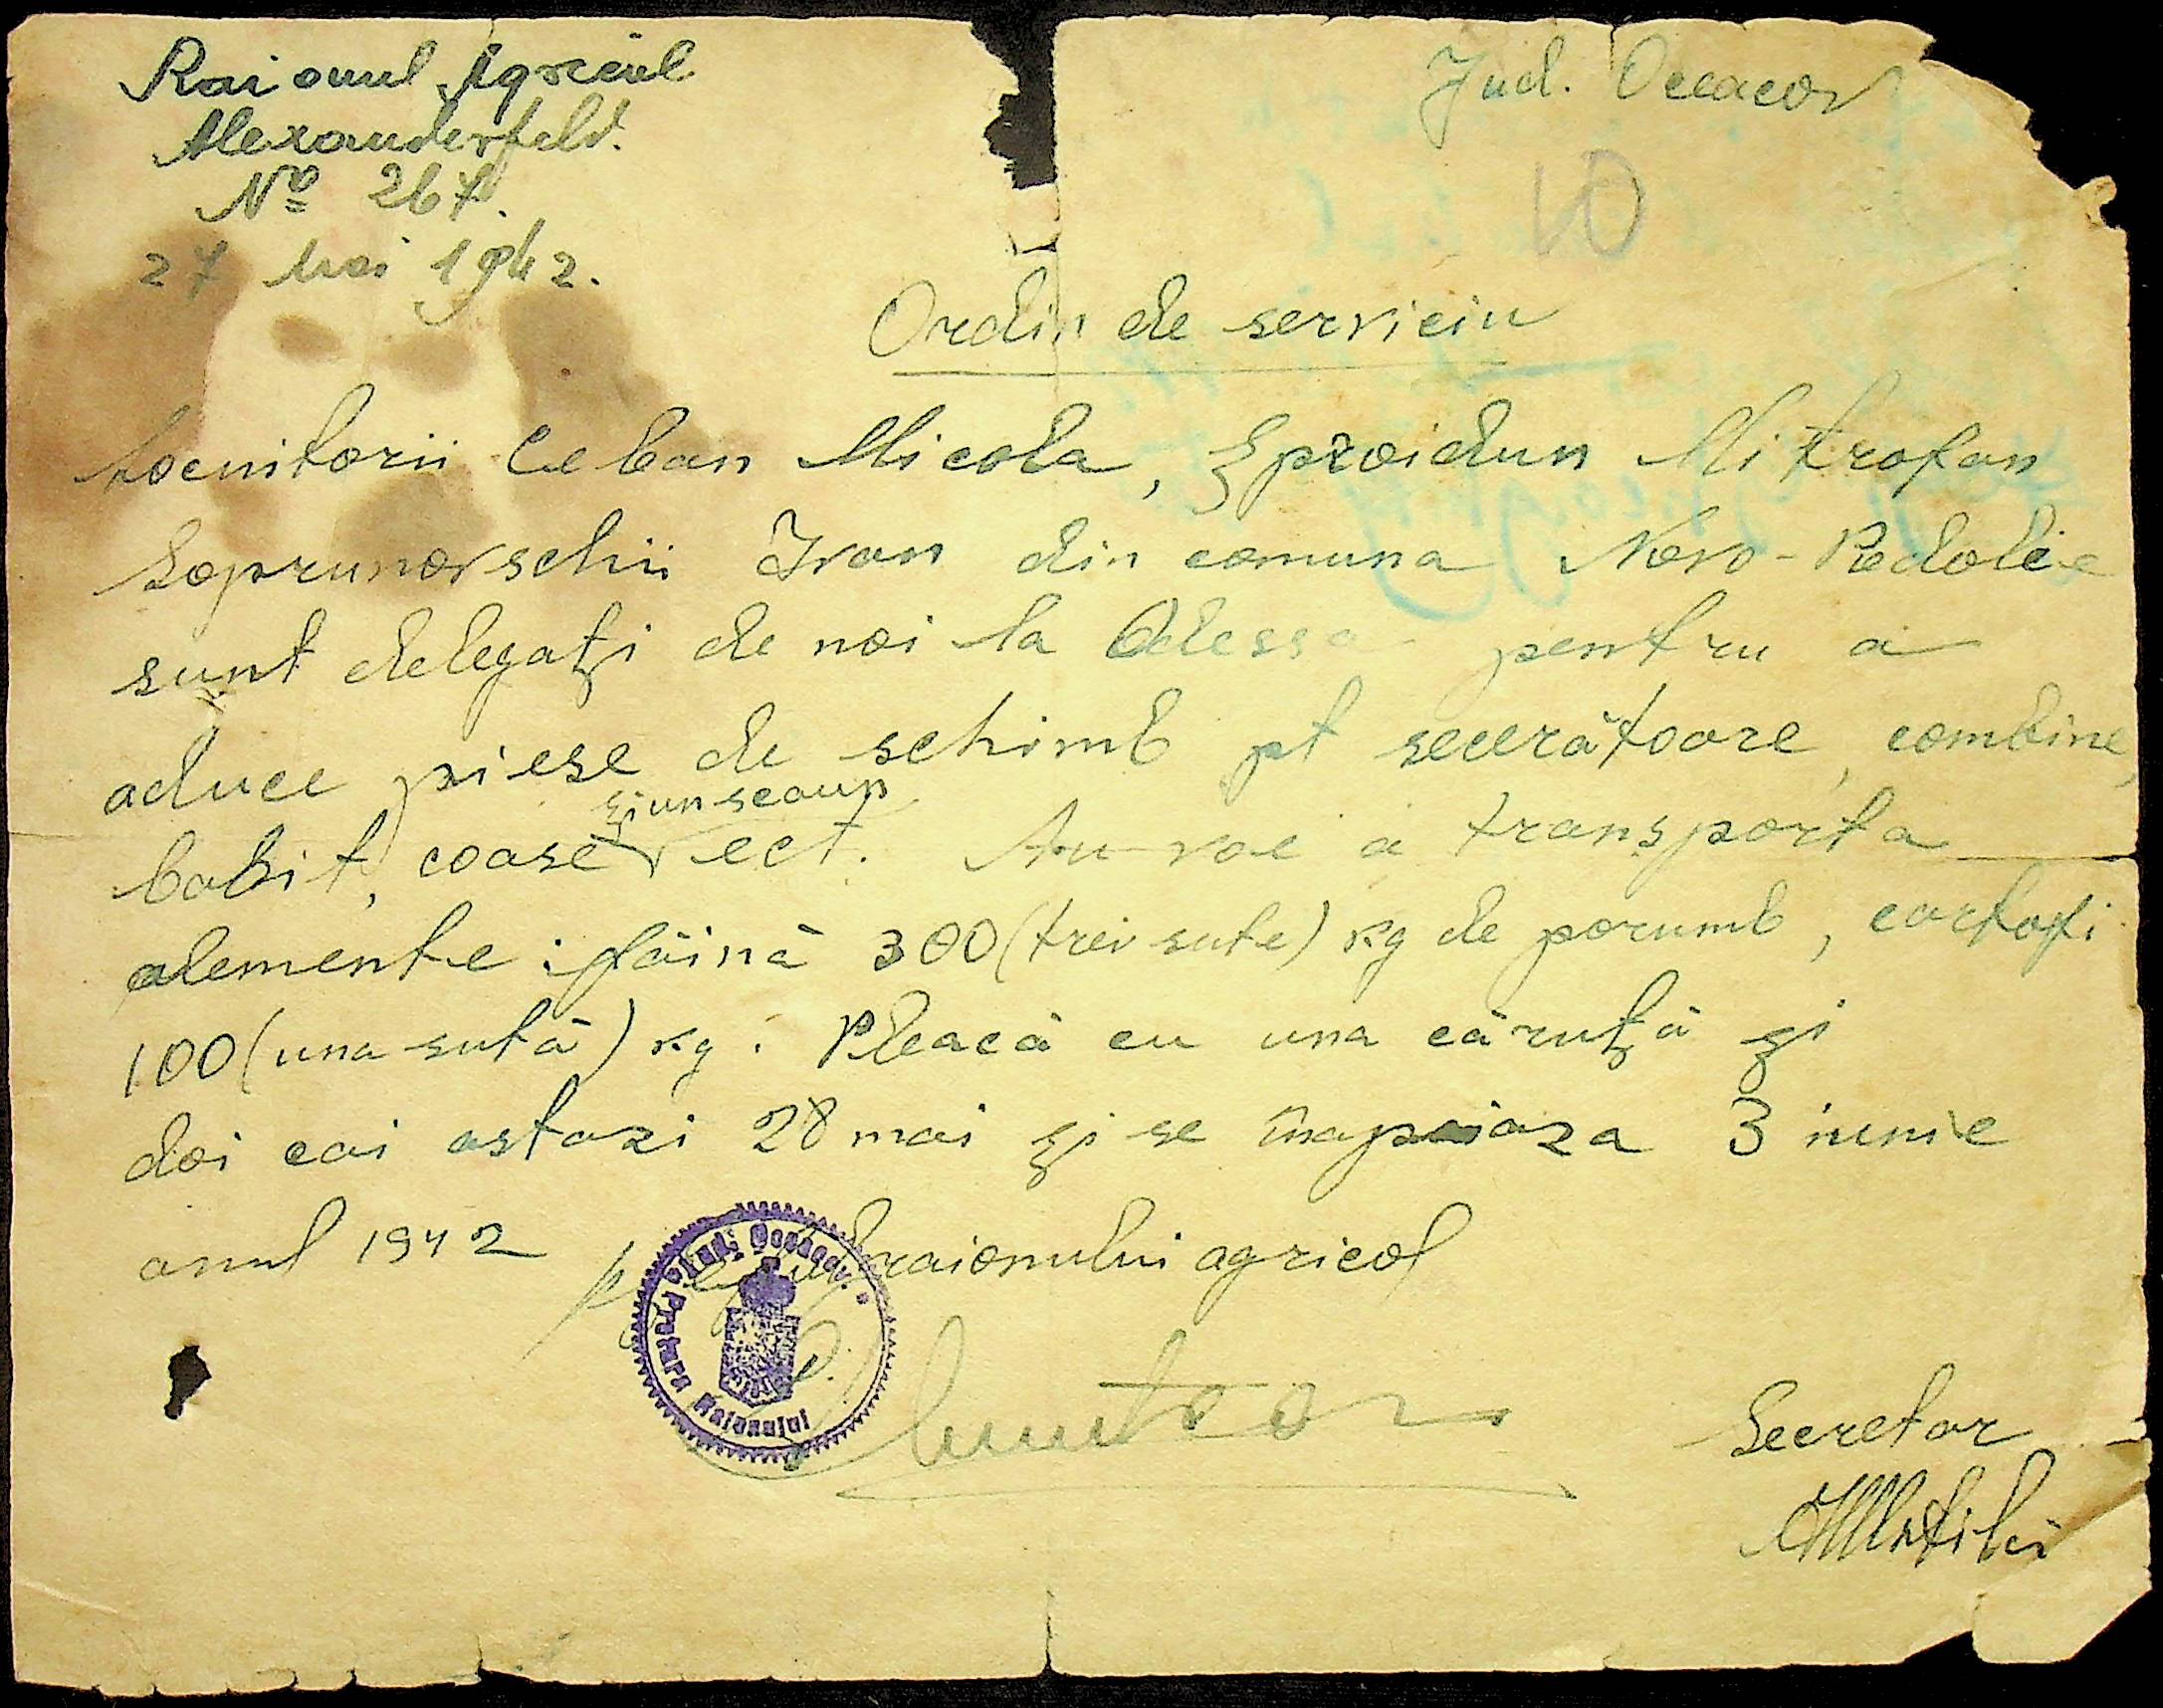 Raionul Agricol
Jud. Oceacov
Alexanderfeld.
Nº 267.
10
27 Mai 1942.
Ordin de serviciu
Locuitorii Ceban Nicola, Şproidun Mitrofan
Soprunovschii Ivan din comuna Novo-Podolie
sunt delegaţi de noi la Odessa pentru a
aduce piese de schimb pt secerătoare, combine,
şi un scaun
babit, coase ect. Au voe a transporta
alemente: făină 300 (trei sute) kg de porumb, cartofi
100 (una sută) kg. Pleacă cu una căruţă şi
doi cai astazi 28 mai şi se înapoiaza 3 iunie
anul 1942
raionului agricol
Jud. Oceacov
Pretura Raionului
Secretar